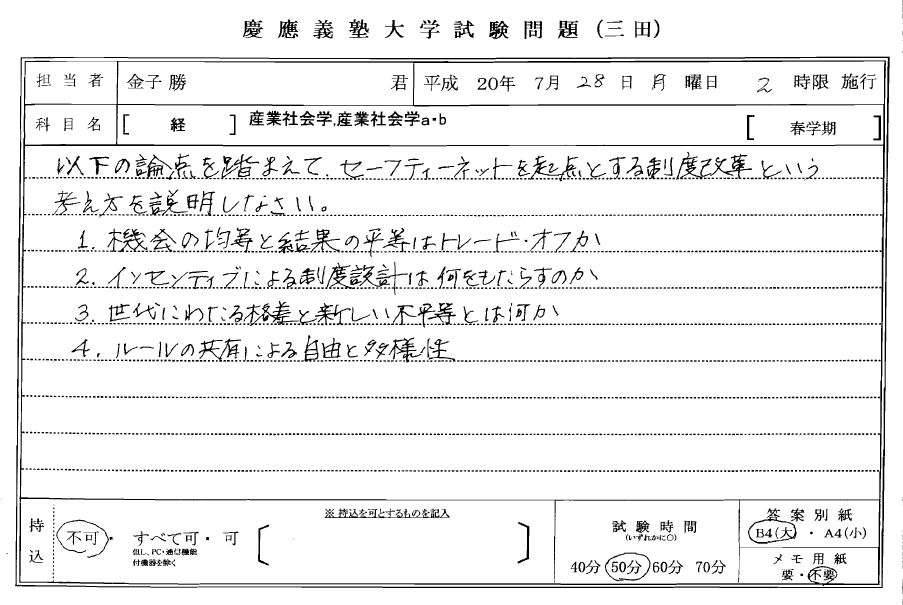 慶應義塾大学試験問題(三田)
担当者 金子 勝 君 平成 20年 7月 28日 月曜日 2 時限 施行
科目名 [ 経 ] 産業社会学,産業社会学a・b [ 春学期 ]
以下の論点を踏まえて、セーフティーネットを起点とする制度改革という
考え方を説明しなさい。
1. 機会の均等と結果の平等はトレード・オフか
2. インセンティブによる制度設計は何をもたらすのか
3. 世代にわたる格差と新しい不平等とは何か
4. ルールの共有による自由と多様性
持込 不可・ すべて可 ・ 可
但し、PC・通信機能
付機器を除く
※ 持込を可とするものを記入
[ ]
試験時間
(いずれかに○)
40分 50分 60分 70分
答案別紙
B4(大) ・ A4(小)
メモ用紙
要・不要